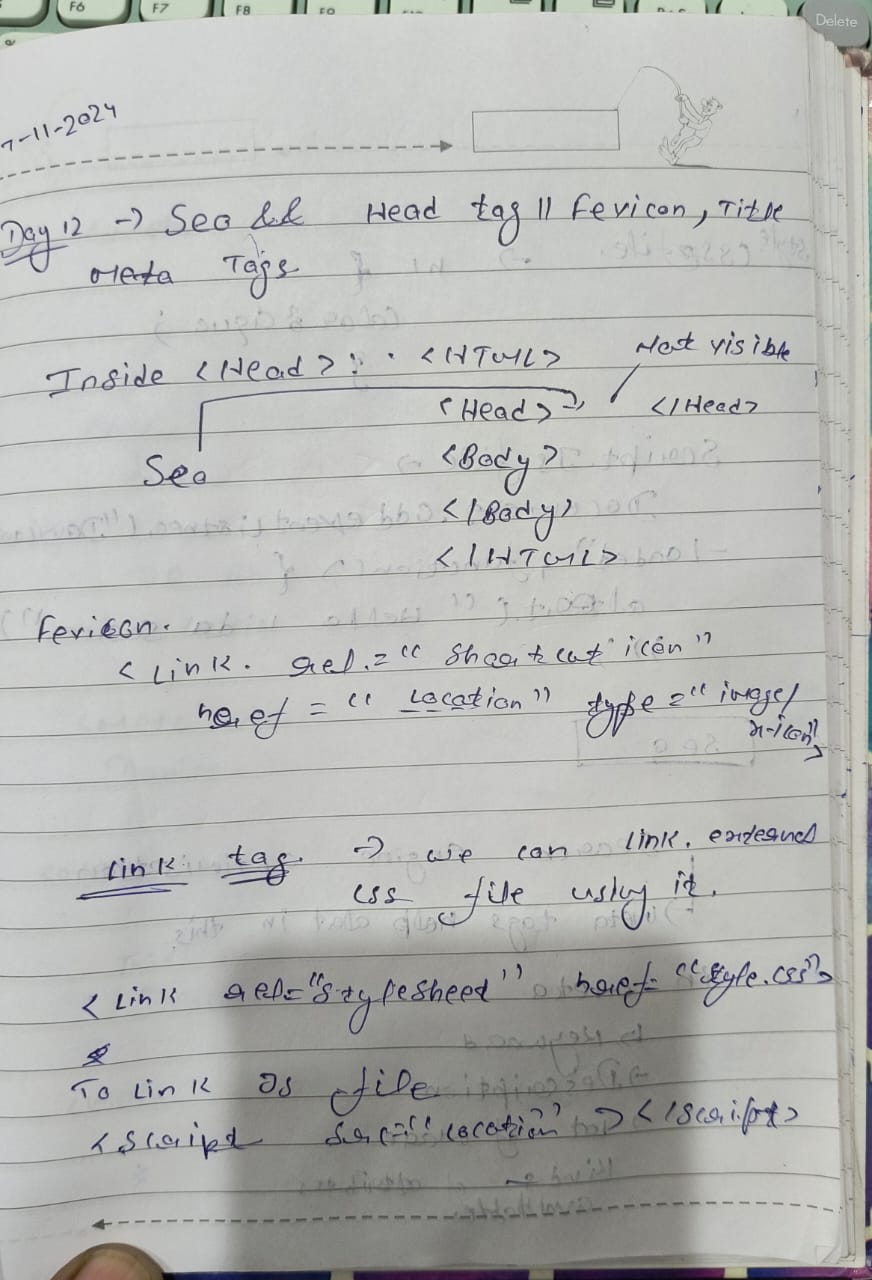 F6 F7 F8 F9
Delete
7-11-2024
Day 12 -> Seo && Head tag || Fevicon, Title
Meta Tags
Inside <Head>: <HTML> Not visible
<Head> -> </Head>
Seo <Body>
</Body>
</HTML>
Fevicon.
<Link. rel.="Shortcut icon"
href = "Location" type="image/
x-icon">
Link tag. -> we can link. external
css file using it.
<Link rel="stylesheet" href="style.css">
To Link JS file
<Script src="location"></Script>